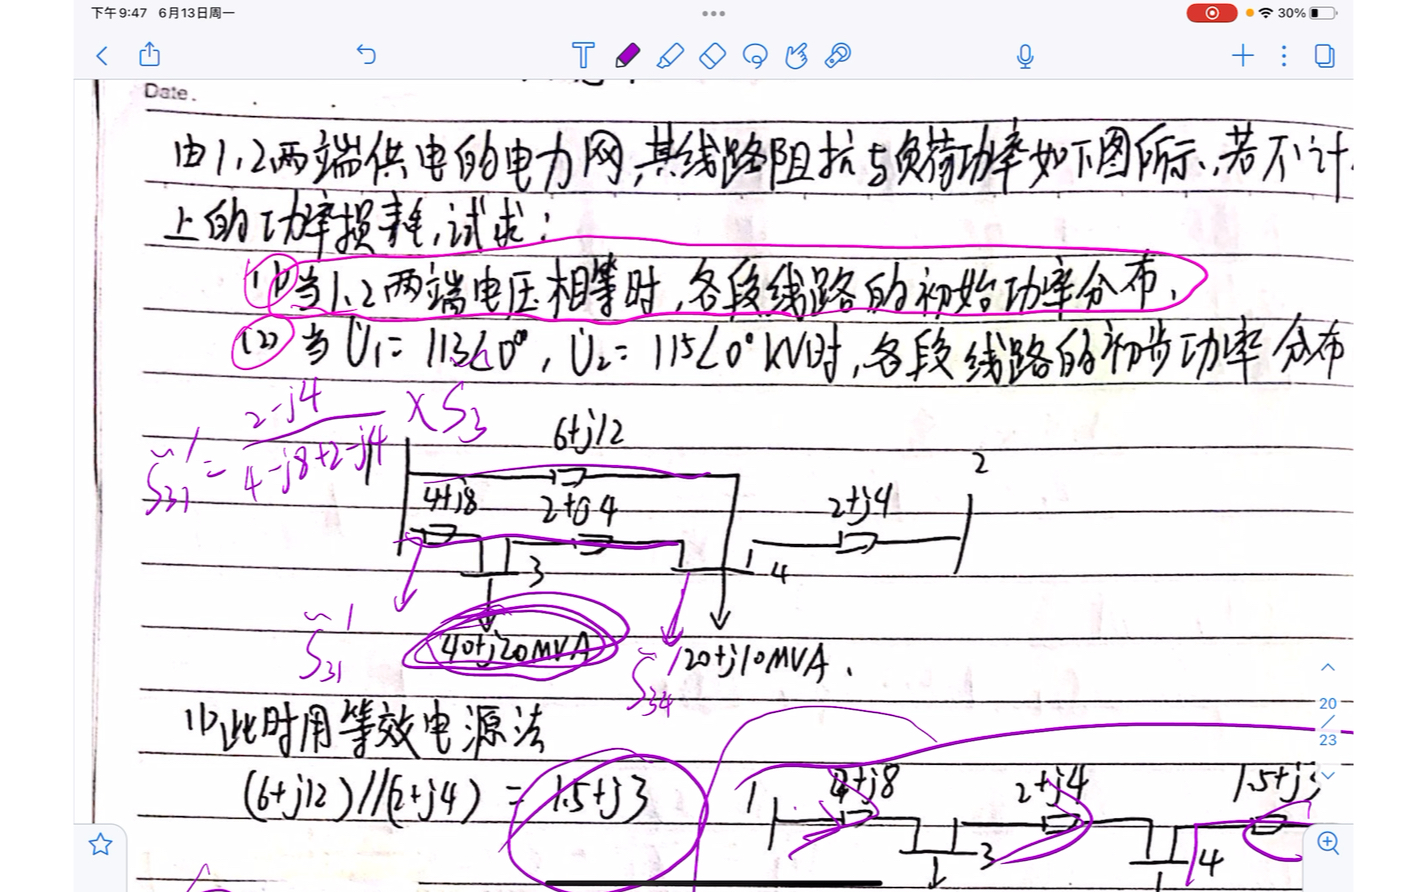 下午9:47 6月13日周一
30%
Date.
由1、2两端供电的电力网,其线路阻抗与负荷功率如下图所示、若不计
上的功率损耗,试求:
(1)当1、2两端电压相等时,各段线路的初始功率分布,
(2)当U̇₁=113∠0°,U̇₂=115∠0°KV时,各段线路的初步功率分布
S̃₃₁' = (2-j4)/(4-j8+2-j4) × S₃
6+j12
2
4+j8
2+j4
2+j4
1
3
4
40+j20MVA
20+j10MVA.
S̃₃₁'
S̃₃₄'
(1)此时用等效电源法
(6+j12)//(2+j4) = 1.5+j3
1
4+j8
2+j4
1.5+j3
3
4
20
/
23